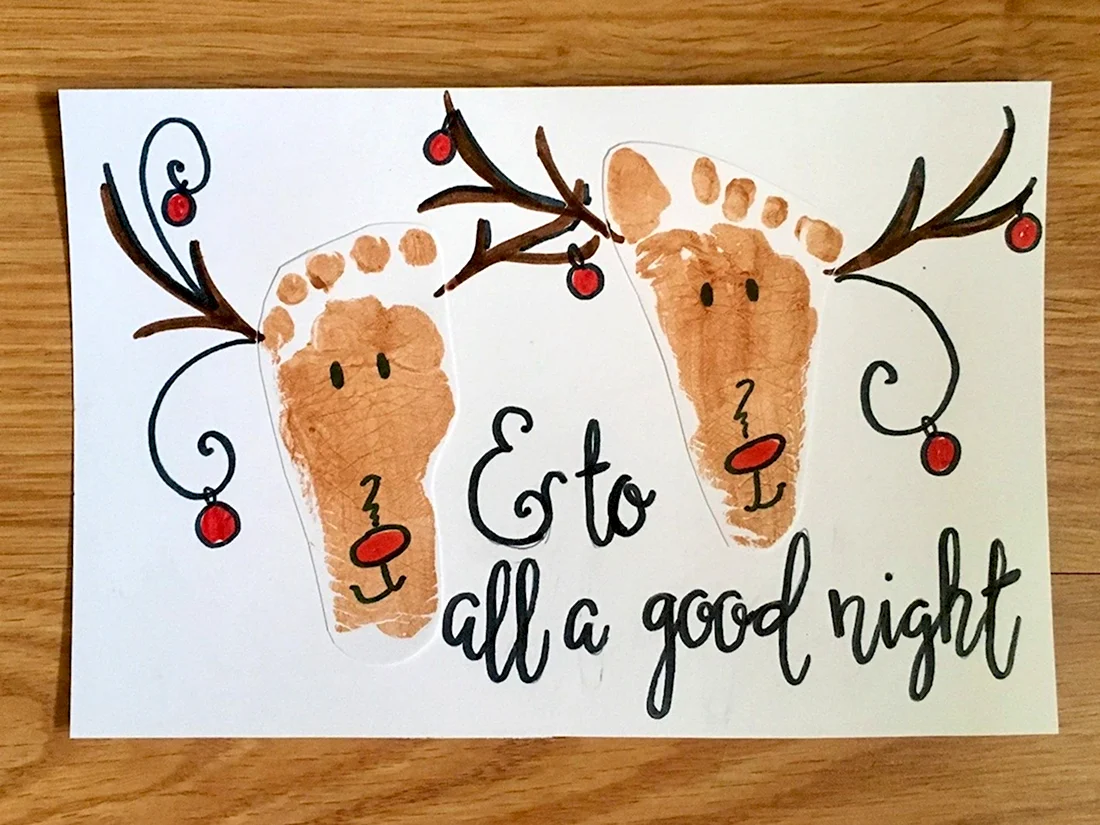 & to
all a good night